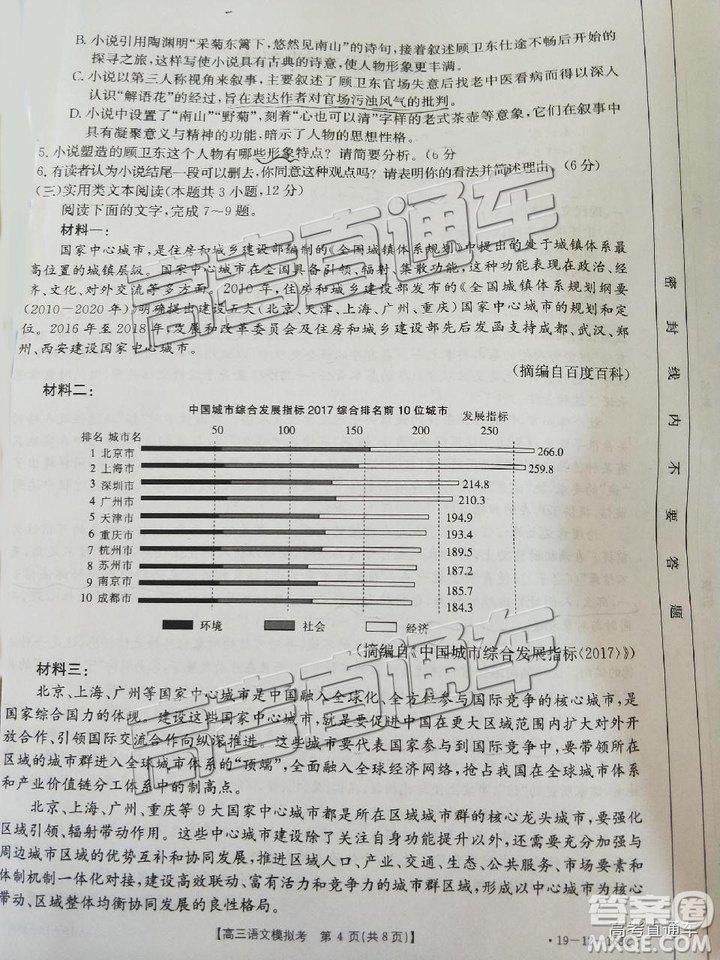 B. 小说引用陶渊明“采菊东篱下,悠然见南山”的诗句,接着叙述顾卫东仕途不畅后的
探寻之旅,这样写使小说具有古典的诗意,使人物形象更丰满。
C. 小说以第三人称视角来叙事,主要叙述了顾卫东官场失意后找老中医看病而得以深入
认识“解语花”的经过,旨在表达作者对官场污浊风气的批判。
D. 小说中设置了“南山”“野菊”,刻着“心也可以清”字样的老式茶壶等意象,它们在小说中
具有凝聚意义与精神的功能,暗示了人物的思想性格。
5. 小说塑造的顾卫东这个人物有哪些形象特点?请简要分析。(6分)
6. 有读者认为小说结尾一段可以删去,你同意这种观点吗?请表明你的看法并简述理由。(6分)
(三)实用类文本阅读(本题共3小题,12分)
阅读下面的文字,完成7～9题。
材料一:
国家中心城市,是住房和城乡建设部编制的《全国城镇体系规划》中提出的处于城镇体系最
高位置的城镇层级。国家中心城市在全国具备引领、辐射、集散功能,这种功能表现在政治、经
济、文化、对外交流等多方面。2010年,住房和城乡建设部发布的《全国城镇体系规划纲要
(2010-2020年)》明确提出建设五大(北京、天津、上海、广州、重庆)国家中心城市的规划和定
位。2016年至2018年,发展和改革委员会及住房和城乡建设部先后发函支持成都、武汉、郑
州、西安建设国家中心城市。
(摘编自百度百科)
材料二:
中国城市综合发展指标2017综合排名前10位城市 发展指标
排名 城市名 50 100 150 200 250
1 北京市 266.0
2 上海市 259.8
3 深圳市 214.8
4 广州市 210.3
5 天津市 194.9
6 重庆市 193.4
7 杭州市 189.5
8 苏州市 187.2
9 南京市 185.7
10 成都市 184.3
环境 社会 经济
(摘编自《中国城市综合发展指标〈2017〉》)
材料三:
北京、上海、广州等国家中心城市是中国融入全球化、全方位参与国际竞争的核心城市,是
国家综合国力的体现。建设这些国家中心城市,就是要促进中国在更大区域范围内扩大对外开
放合作、引领国际交流合作向纵深推进。这些城市要代表国家参与到国际竞争中,要带领所在
区域的城市群进入全球城市体系的“顶端”,全面融入全球经济网络,抢占我国在全球城市体系
和产业价值链分工体系中的制高点。
北京、上海、广州、重庆等9大国家中心城市都是所在区域城市群的核心龙头城市,要强化
区域引领、辐射带动作用。这些中心城市建设除了关注自身发展以外,还需要充分加强与
周边城市区域的优势互补和协同发展,推行在人口、产业、交通、生态、公共服务、市场要素和
体制机制一体化对接,建设高效联动、富有活力和竞争力的城市群区域,形成以中心城市为核心
带动、区域整体均衡协同发展的良性格局。
【高三语文模拟考 第4页(共8页)】
密封线内不要答题
高考直通车
高考直通车
答案圈
高考直通车